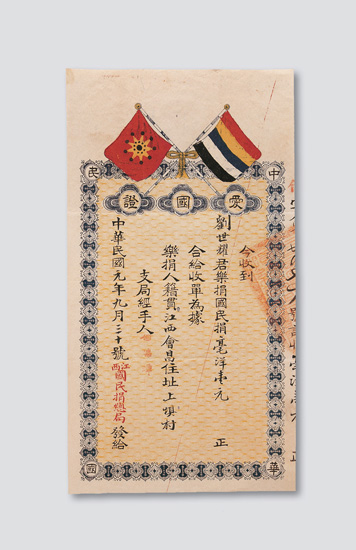 中華民國
愛國證
今收到
劉世耀君樂捐國民捐毫洋壹元 正
合給收單為據
樂捐人籍貫江西會昌住址上填村
支局經手人
中華民國元年九月三十號江西國民捐總局發給